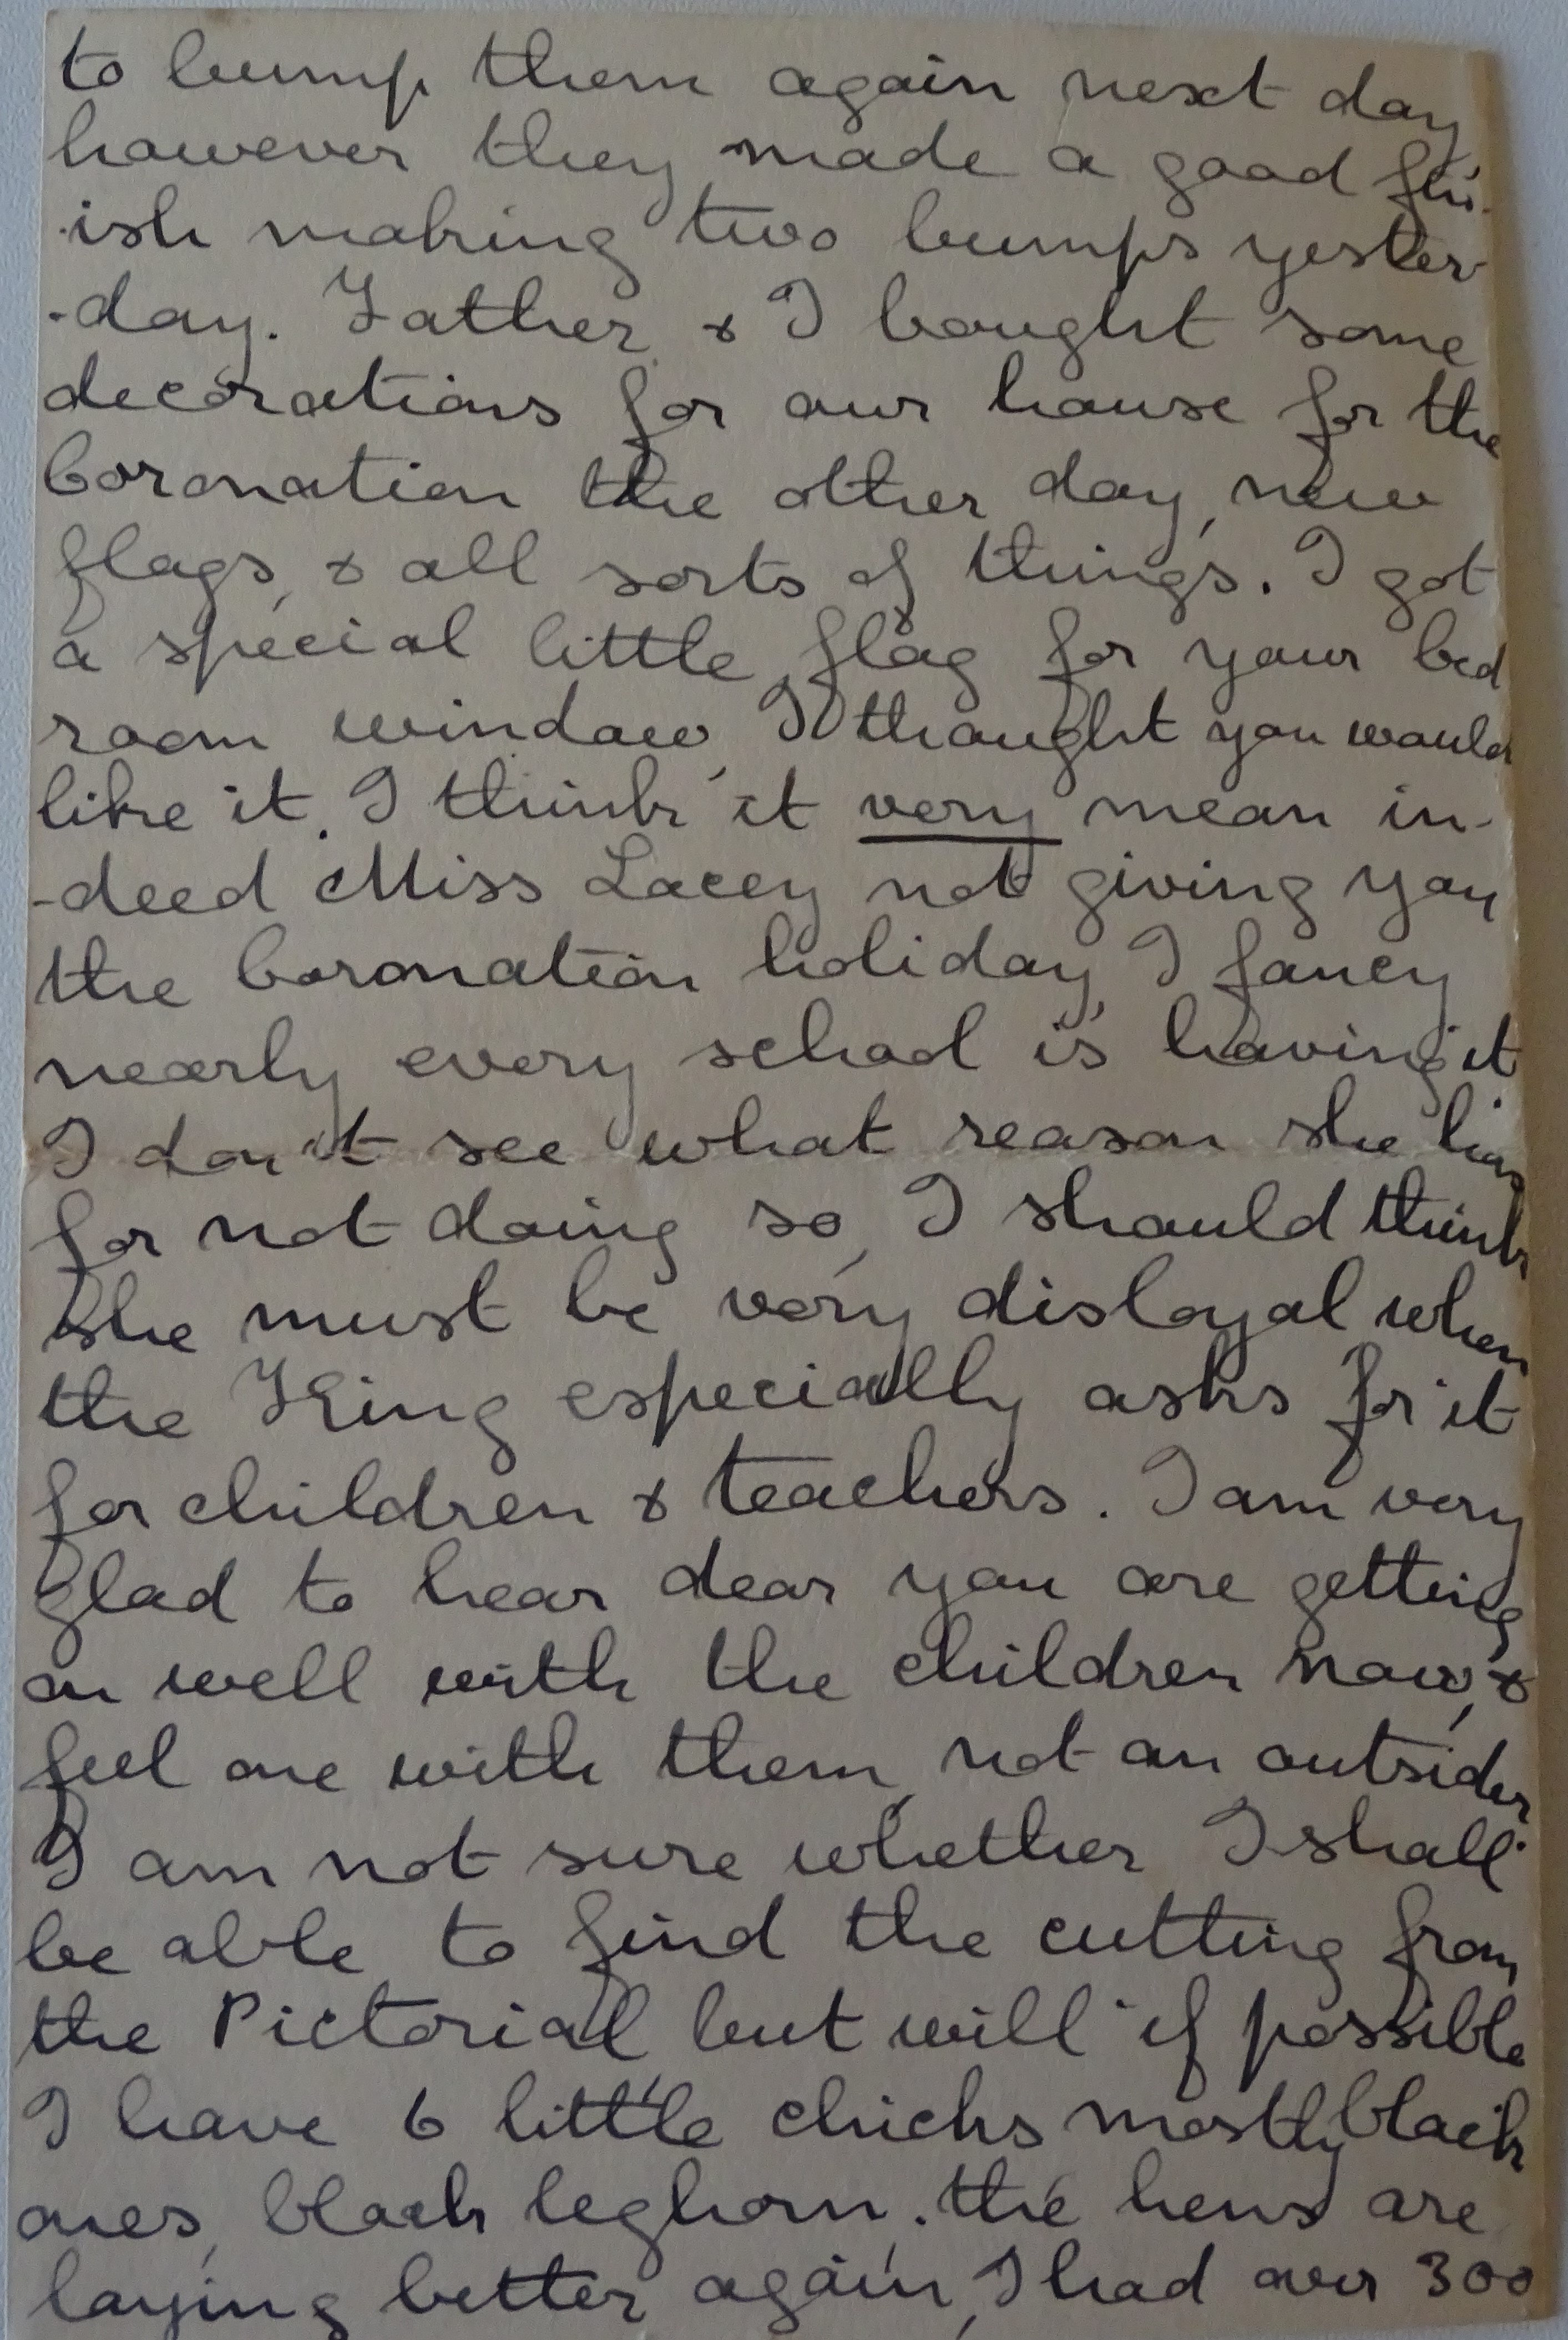 to bump them again next day
however they made a good fin-
-ish making two bumps yester-
-day. Father & I bought some
decorations for our house for the
Coronation the other day, new
flags, & all sorts of things. I got
a special little flag for your bed
room window, I thought you would
like it. I think it very mean in-
-deed Miss Lacey not giving you
the Coronation holiday, I fancy
nearly every school is having it
I don't see what reason she has
for not doing so, I should think
she must be very disloyal when
the King especially asks for it
for children & teachers. I am very
glad to hear dear you are getting
on well with the children now, &
feel one with them, not an outsider
I am not sure whether I shall
be able to find the cutting from
the Pictorial but will if possible
I have 6 little chicks mostly black
ones, black leghorn. the hens are
laying better again, I had over 300